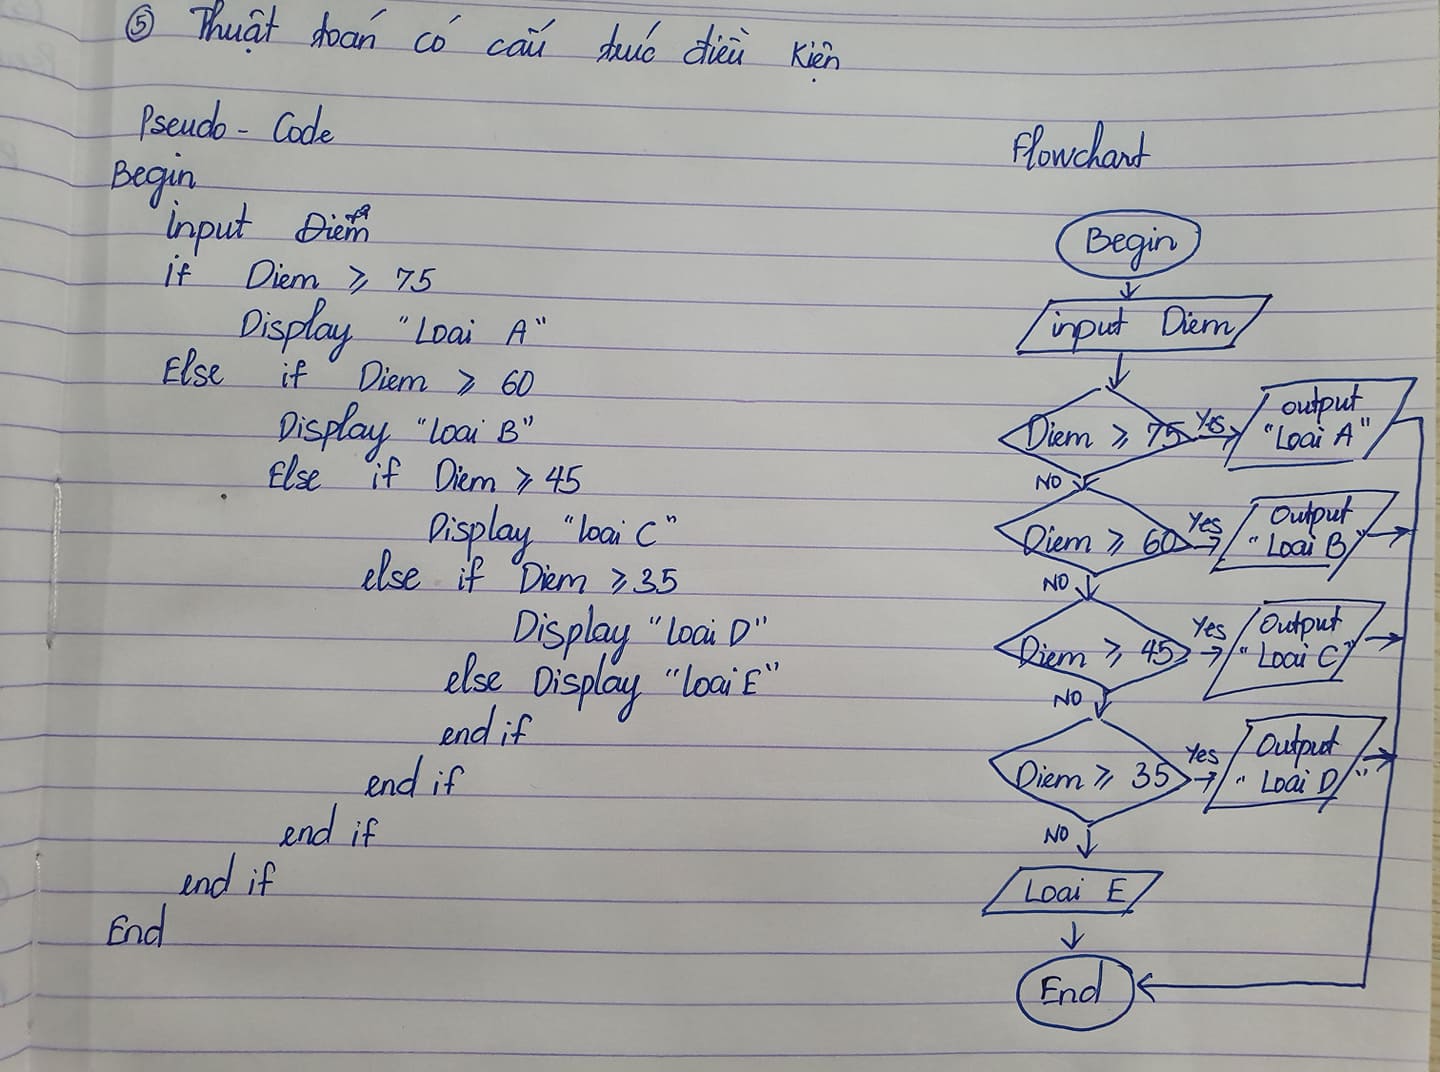 ⑤ Thuật toán có cấu trúc điều kiện
Pseudo - Code
Begin
input Điểm
if Diem ⩾ 75
Display "Loai A"
Else if Diem ⩾ 60
Display "loai B"
Else if Diem ⩾ 45
Display "loai C"
else if Diem ⩾ 35
Display "loai D"
else Display "loai E"
end if
end if
end if
end if
End
Flowchart
Begin
input Diem
Diem ⩾ 75
Yes
output
"Loai A"
NO
Diem ⩾ 60
Yes
Output
"Loai B"
NO
Diem ⩾ 45
Yes
Output
"Loai C"
NO
Diem ⩾ 35
Yes
Output
"Loai D"
NO
Loai E
End